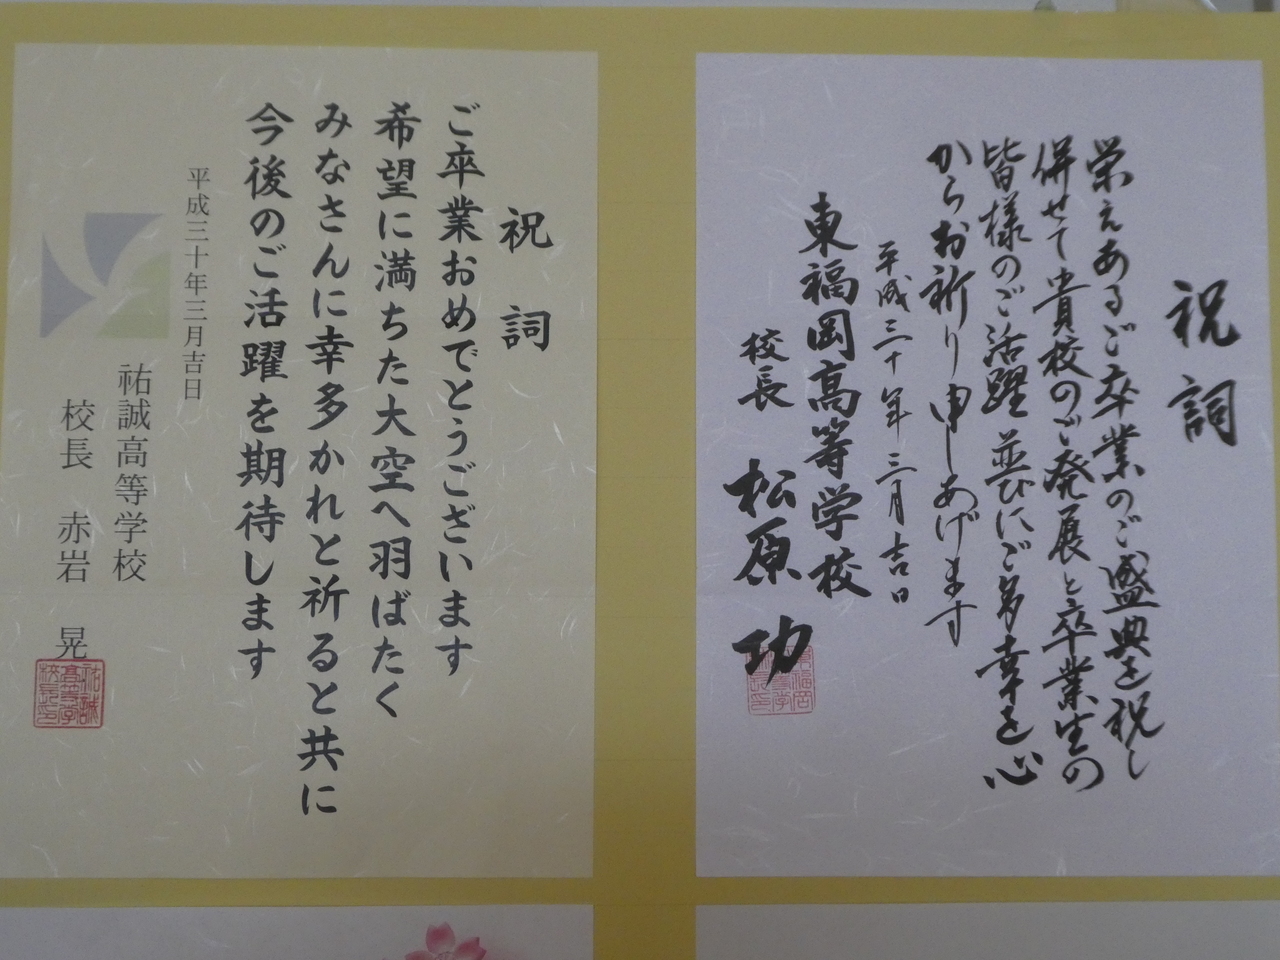 祝詞
栄えあるご卒業のご盛典を祝し
併せて貴校のご発展と卒業生の
皆様のご活躍並びにご多幸を心
からお祈り申しあげます
平成三十年三月吉日
東福岡高等学校
校長 松原 功
祝詞
ご卒業おめでとうございます
希望に満ちた大空へ羽ばたく
みなさんに幸多かれと祈ると共に
今後のご活躍を期待します
平成三十年三月吉日
祐誠高等学校
校長 赤岩 晃
祐誠高等学校長印